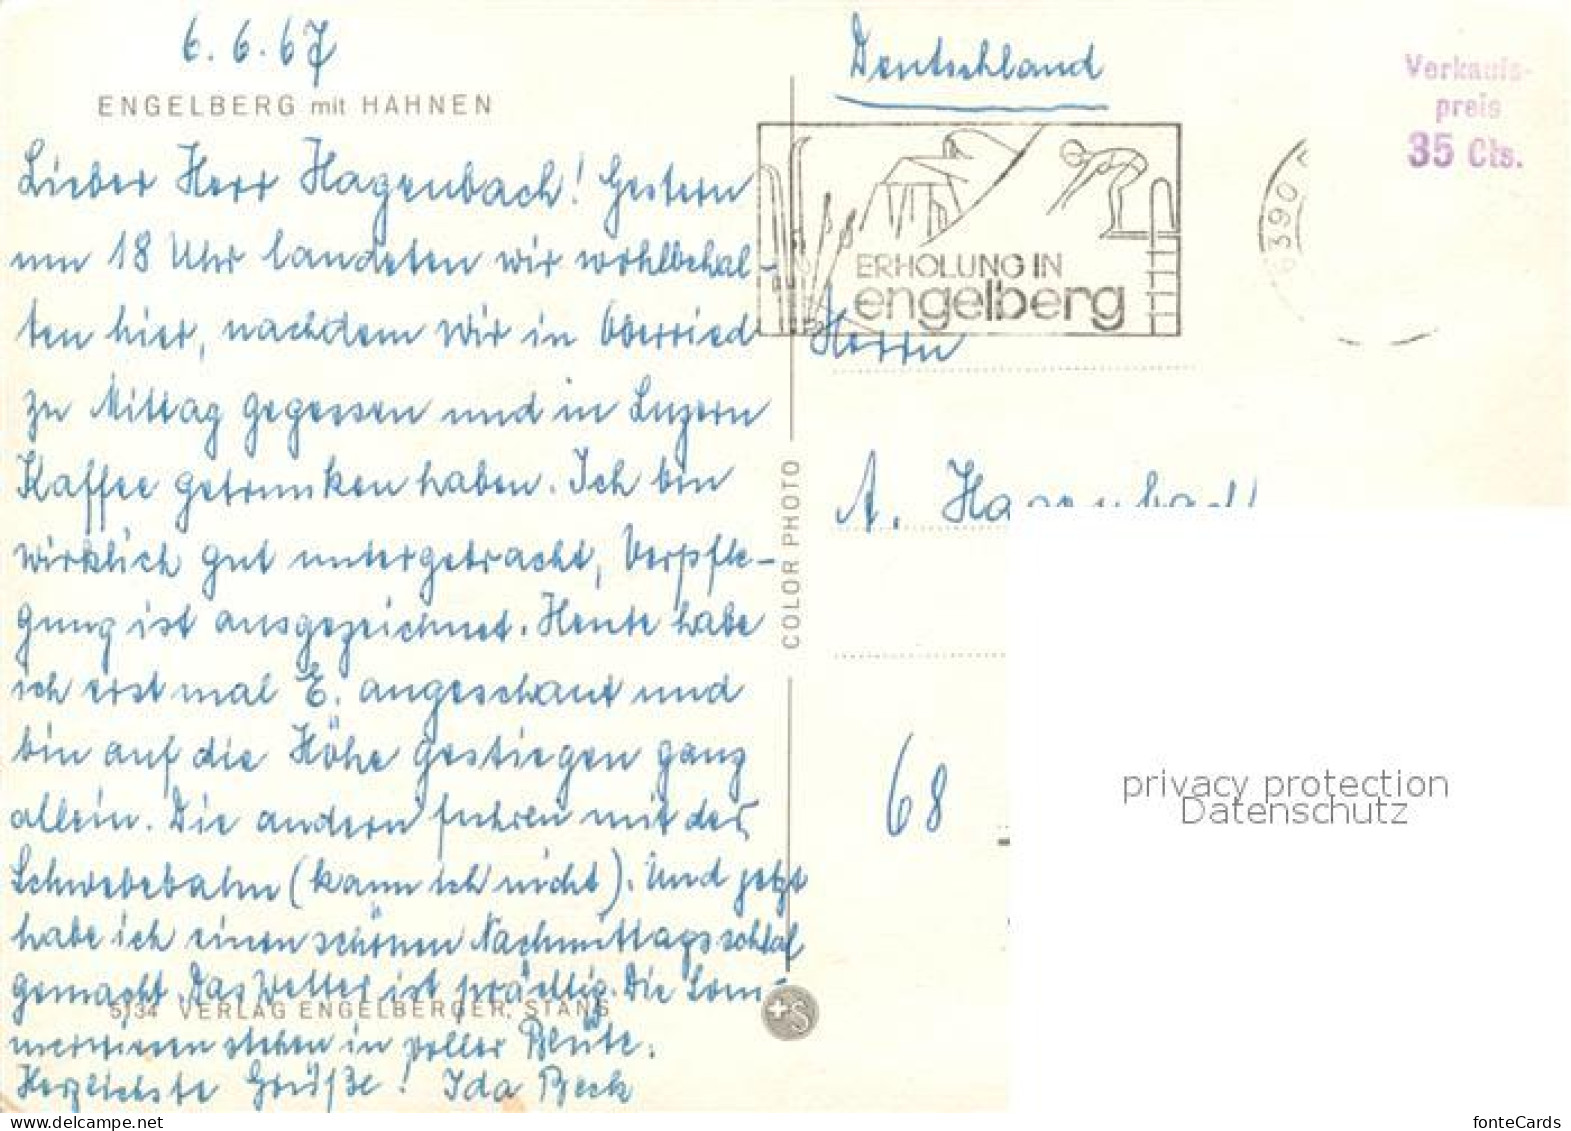 6.6.67
ENGELBERG mit HAHNEN
Lieber Herr Hagenbach! Gestern
um 18 Uhr landeten wir wohlbehal-
ten hier, nachdem wir in Oberried
zu Mittag gegessen und in Luzern
Kaffee getrunken haben. Ich bin
wirklich gut untergebracht, Verpfle-
gung ist ausgezeichnet. Heute habe
ich erst mal E. angeschaut und
bin auf die Höhe gestiegen ganz
allein. Die andern fuhren mit der
Schwebebahn (kann ich nicht). Und jetzt
habe ich einen schönen Nachmittagsschlaf
gemacht. Das Wetter ist prächtig. Die Som-
5134 VERLAG ENGELBERGER, STANS
merwiesen stehen in voller Blüte.
Herzlichste Grüße! Ida Beck
COLOR PHOTO
+S
Deutschland
ERHOLUNG IN
engelberg
6390
Verkaufs-
preis
35 Cts.
Herrn
A. Hagenbach
68
privacy protection
Datenschutz
www.delcampe.net
fonteCards